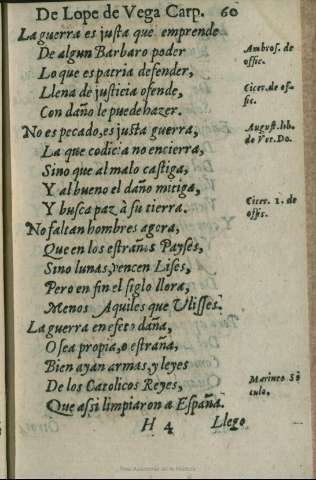 De Lope de Vega Carp. 60
La guerra es justa que emprende
De algun Barbaro poder
Lo que es patria defender,
Llena de justicia ofende,
Con daño le puede hazer.
No es pecado, es justa guerra,
La que codicia no encierra,
Sino que al malo castiga,
Y al bueno el daño mitiga,
Y busca paz à su tierra.
No faltan hombres agora,
Que en los estraños Payses,
Sino lunas, vencen Lises,
Pero en fin el siglo llora,
Menos Aquiles que Ulisses.
La guerra en efeto daña,
O sea propia, o estraña,
Bien ayan armas, y leyes
De los Catolicos Reyes,
Que assi limpiaron a España.
H 4 Llego
Ambros. de
offic.
Cicer. de of-
fic.
August. lib.
de Ver. Do.
Cicer. 1. de
offis.
Marineo Si
culo.